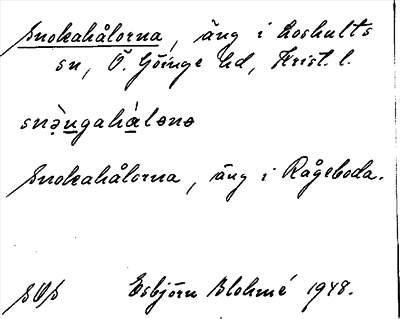 Snokahålorna, äng i Loshults
sn, Ö. Göinge hd, Krist. l.
snə̀ŋgahálənə
Snokahålorna, äng i Rågeboda.
SOS Esbjörn Blohmé 1948.